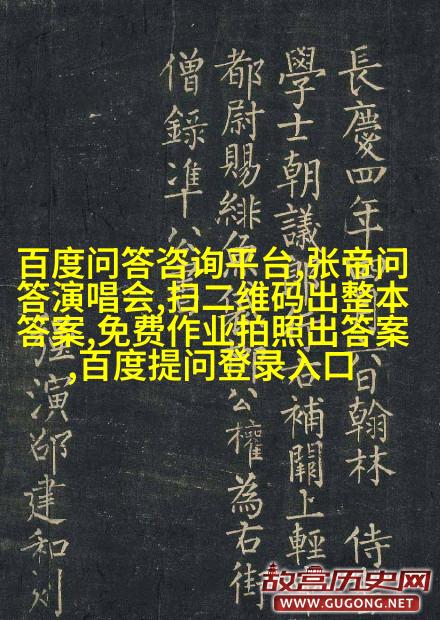 長慶四年 六日翰林 侍
學士朝議 右補闕上輕
都尉賜緋 公權為右街
僧錄准公
強演邵建和刻
百度问答咨询平台,张帝问
答演唱会,扫二维码出整本
答案,免费作业拍照出答案
,百度提问登录入口
故宫历史网
WWW.GUGONG.NET